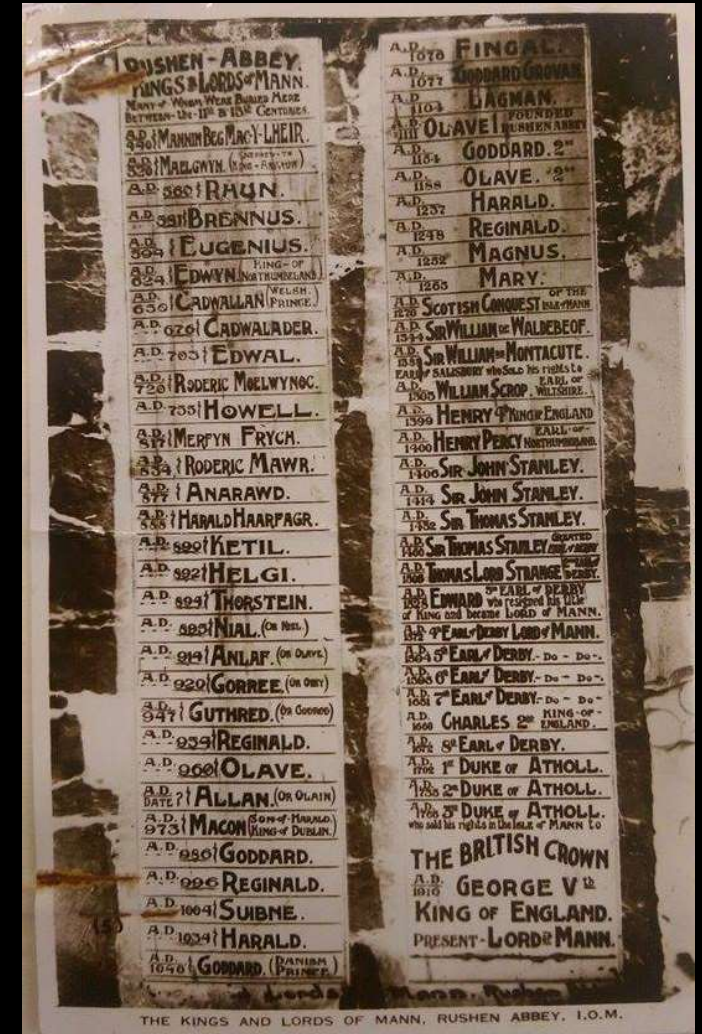 RUSHEN-ABBEY.
KINGS & LORDS of MANN.
MANY OF WHOM WERE BURIED HERE
BETWEEN-THE-11TH & 15TH CENTURIES.
A.D. MANNIN BEG MAC-Y-LHEIR.
MAELGWYN.
A.D. 560 RHUN.
A.D. BRENNUS.
A.D. 594 EUGENIUS.
A.D. 624 EDWYN (KING-OF NORTHUMBERLAND)
A.D. 630 CADWALLAN (WELSH. PRINCE.)
A.D. 676 CADWALADER.
A.D. 703 EDWAL.
A.D. 720 RODERIC MOELWYNOC.
A.D. 755 HOWELL.
A.D. MERFYN FRYCH.
A.D. RODERIC MAWR.
A.D. 877 ANARAWD.
A.D. 888 HARALD HAARFAGR.
A.D. 890 KETIL.
A.D. 892 HELGI.
A.D. 894 THORSTEIN.
A.D. 895 NIAL. (OR NEEL)
A.D. 914 ANLAF. (OR OLAVE)
A.D. 920 GORREE. (OR ORRY)
A.D. 947 GUTHRED. (OR GODRED)
A.D. 954 REGINALD.
A.D. 960 OLAVE.
A.D. DATE ? ALLAN. (OR OLAIN)
A.D. 973 MACON (SON-OF-HARALD. KING OF DUBLIN.)
A.D. 986 GODDARD.
A.D. 996 REGINALD.
A.D. 1004 SUIBNE.
A.D. 1034 HARALD.
A.D. 1040 GODDARD. (DANISH PRINCE.)
A.D. 1070 FINGAL.
A.D. 1077 GODDARD CROVAN.
A.D. 1104 LAGMAN.
A.D. 1111 OLAVE I FOUNDED RUSHEN ABBEY
A.D. 1154 GODDARD. 2ND
A.D. 1188 OLAVE. 2ND
A.D. 1237 HARALD.
A.D. 1248 REGINALD.
A.D. 1252 MAGNUS.
A.D. 1265 MARY.
A.D. 1270 SCOTISH CONQUEST OF THE ISLE of MANN
A.D. 1344 SIR WILLIAM DE WALDEBEOF.
A.D. SIR WILLIAM DE MONTACUTE.
EARL of SALISBURY who Sold his rights to
A.D. WILLIAM SCROP. EARL OF WILTSHIRE.
A.D. 1399 HENRY 4TH KING of ENGLAND
A.D. 1400 HENRY PERCY EARL-OF-NORTHUMBERLAND.
A.D. 1406 SIR JOHN STANLEY.
A.D. 1414 SIR JOHN STANLEY.
A.D. 1432 SIR THOMAS STANLEY.
A.D. 1460 SIR THOMAS STANLEY CREATED EARL of DERBY
A.D. THOMAS LORD STRANGE 2ND EARL of DERBY.
A.D. EDWARD 3RD EARL OF DERBY
who resigned his title
of KING and became LORD OF MANN.
A.D. 4TH EARL of DERBY LORD of MANN.
A.D. 5TH EARL of DERBY.- DO - DO-.
A.D. 6TH EARL of DERBY.- DO - DO-
A.D. 7TH EARL of DERBY.- DO - DO-
A.D. 1660 CHARLES 2ND KING-OF-ENGLAND.
A.D. 8TH EARL of DERBY.
A.D. 1ST DUKE OF ATHOLL.
A.D. 2ND DUKE OF ATHOLL.
A.D. 3RD DUKE OF ATHOLL.
who sold his rights in the ISLE of MANN to
THE BRITISH CROWN
A.D. 1910 GEORGE Vth
KING OF ENGLAND.
PRESENT-LORD of MANN.
(5)
Lords Mann. Rushen
THE KINGS AND LORDS OF MANN, RUSHEN ABBEY, I.O.M.